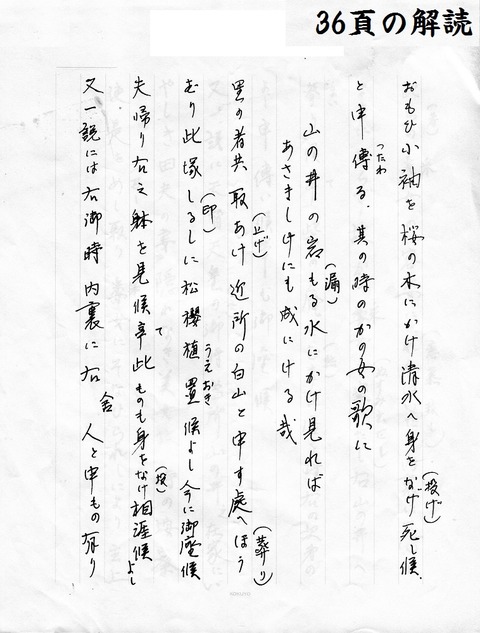 36頁の解読
おもひ小袖を桜の木にかけ清水へ身をなげ(投げ)死し候。
と申傳(つたわ)る。其の時のかの女の歌に
山の井の岩もる(漏)水にかけ見れば
あさましけにも成にける哉
里の者共取あけ(上げ)近所の白山と申す處へほう(葬り)
むり此塚しるし(印)に松櫻植置(うえおき)候よし今に御座候
夫帰り右之躰を見候て此ものも身をなけ(投)相涯候よし
又一説には右御時内裏に右舎人と申もの有り